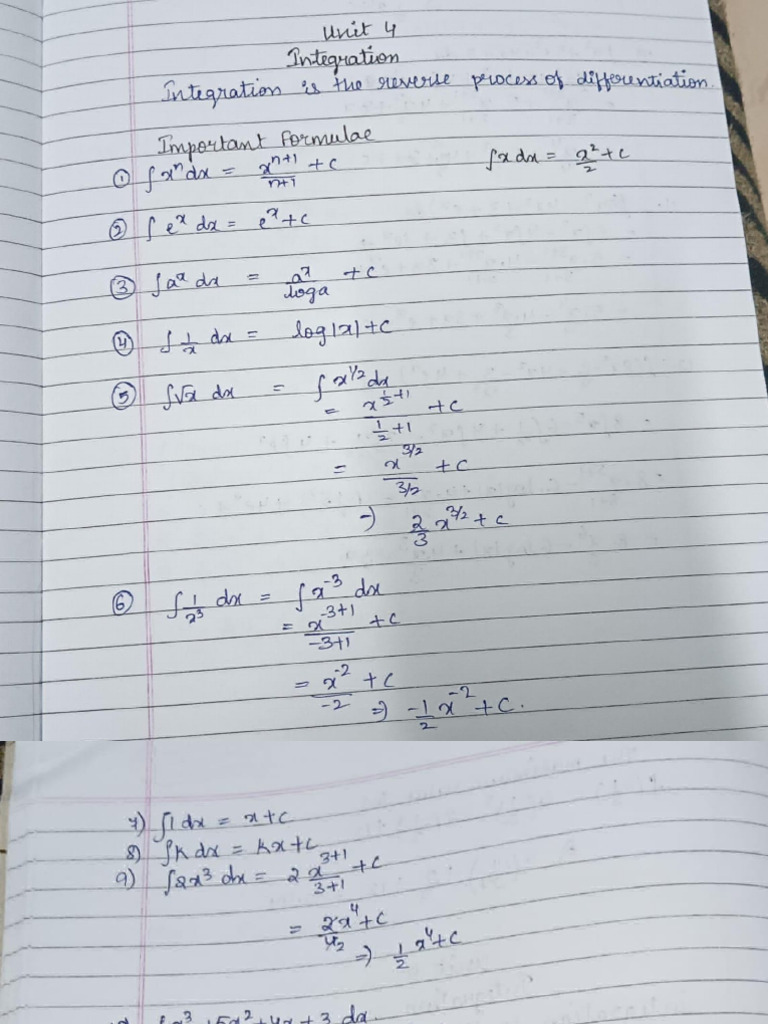 Unit 4
Integration
Integration is the reverse process of differentiation.
Important Formulae
① ∫xⁿdx = xⁿ⁺¹/n+1 + c    ∫x dx = x²/2 + c
② ∫eˣ dx = eˣ + c
③ ∫aˣ dx = aˣ/log a + c
④ ∫1/x dx = log|x| + c
⑤ ∫√x dx = ∫x^1/2 dx
= x^(1/2+1)/(1/2+1) + c
= x^3/2/(3/2) + c
→ 2/3 x^3/2 + c
⑥ ∫1/x³ dx = ∫x⁻³ dx
= x⁻³⁺¹/-3+1 + c
= x⁻²/-2 + c
⇒ -1/2 x⁻² + c.
7) ∫1 dx = x + c
8) ∫k dx = kx + c
9) ∫2x³ dx = 2 x³⁺¹/3+1 + c
= 2x⁴/4 2 + c
⇒ 1/2 x⁴ + c
x³ + 5x² + 4x + 3 dx.